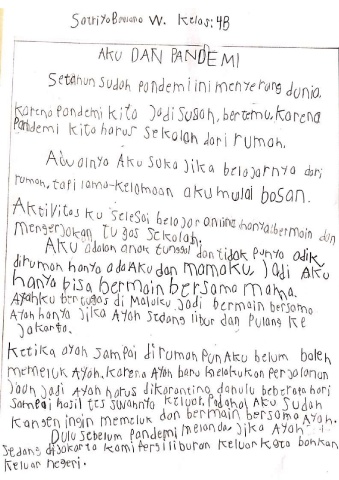 Satriyo Bowono W. Kelas: 4B
AKU DAN PANDEMI
Setahun sudah pandemi ini menyerang dunia.
Karena Pandemi kita jadi susah, bertemu, karena
Pandemi kita harus sekolah dari rumah.
Awalnya Aku suka jika belajarnya dari
rumah, tapi lama-kelamaan aku mulai bosan.
Aktivitas ku selesai belajar online hanya bermain dan
mengerjakan tugas sekolah.
Aku adalah anak tunggal dan tidak punya adik
dirumah hanya ada Aku dan mamaku, Jadi Aku
hanya bisa bermain bersama mama.
Ayahku bertugas di Maluku Jadi bermain bersama
Ayah hanya Jika Ayah sedang libur dan Pulang ke
Jakarta.
Ketika ayah sampai dirumah pun Aku belum boleh
memeluk Ayah. Karena Ayah baru melakukan Perjalanan
Jauh Jadi Ayah harus dikarantina dahulu beberapa hari
sampai hasil tes swabnya keluar. Padahal Aku sudah
kangen ingin memeluk dan bermain bersama Ayah.
Dulu sebelum Pandemi melanda, Jika Ayah
sedang di Jakarta kami Pergi liburan keluar kota bahkan
keluar negeri.